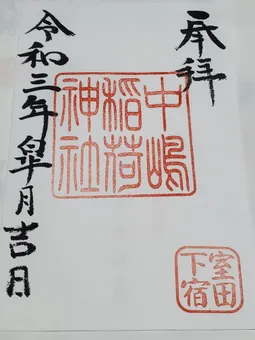 奉拝
中嶋
稲荷
神社
室田
下宿
令和三年皐月吉日